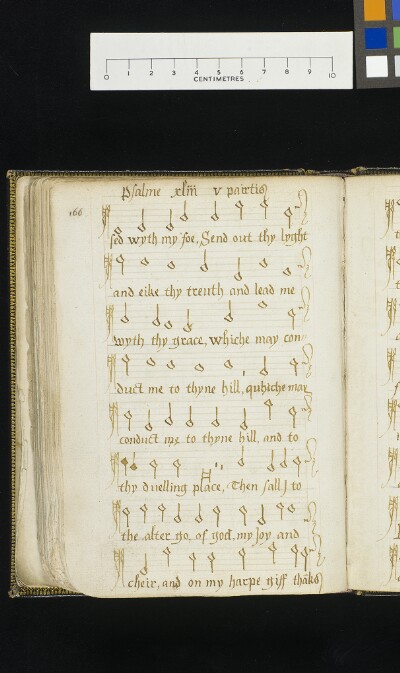 0 1 2 3 4 5 6 7 8 9 10
CENTIMETRES
Psalme xliii v pairtis
166
sed wyth my foe, Send out thy lyght
and eike thy treuth and lead me
wyth thy grace, whiche may con-
duct me to thyne hill, quhiche may
conduct me to thyne hill, and to
thy duelling place, Then sall J to
the alter go, of god, my Joy and
cheir, and on my harpe giff thāks